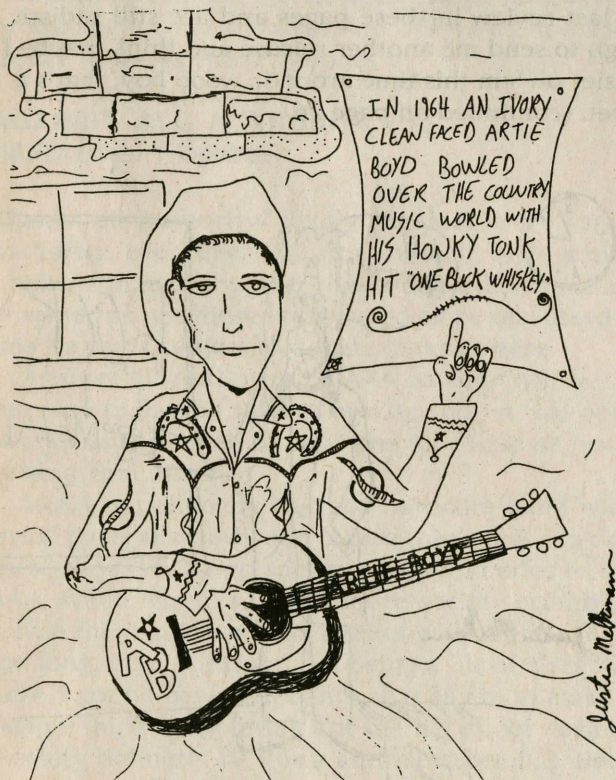 IN 1964 AN IVORY
CLEAN FACED ARTIE
BOYD BOWLED
OVER THE COUNTRY
MUSIC WORLD WITH
HIS HONKY TONK
HIT "ONE BUCK WHISKEY"
ARTIE BOYD
AB
Justin